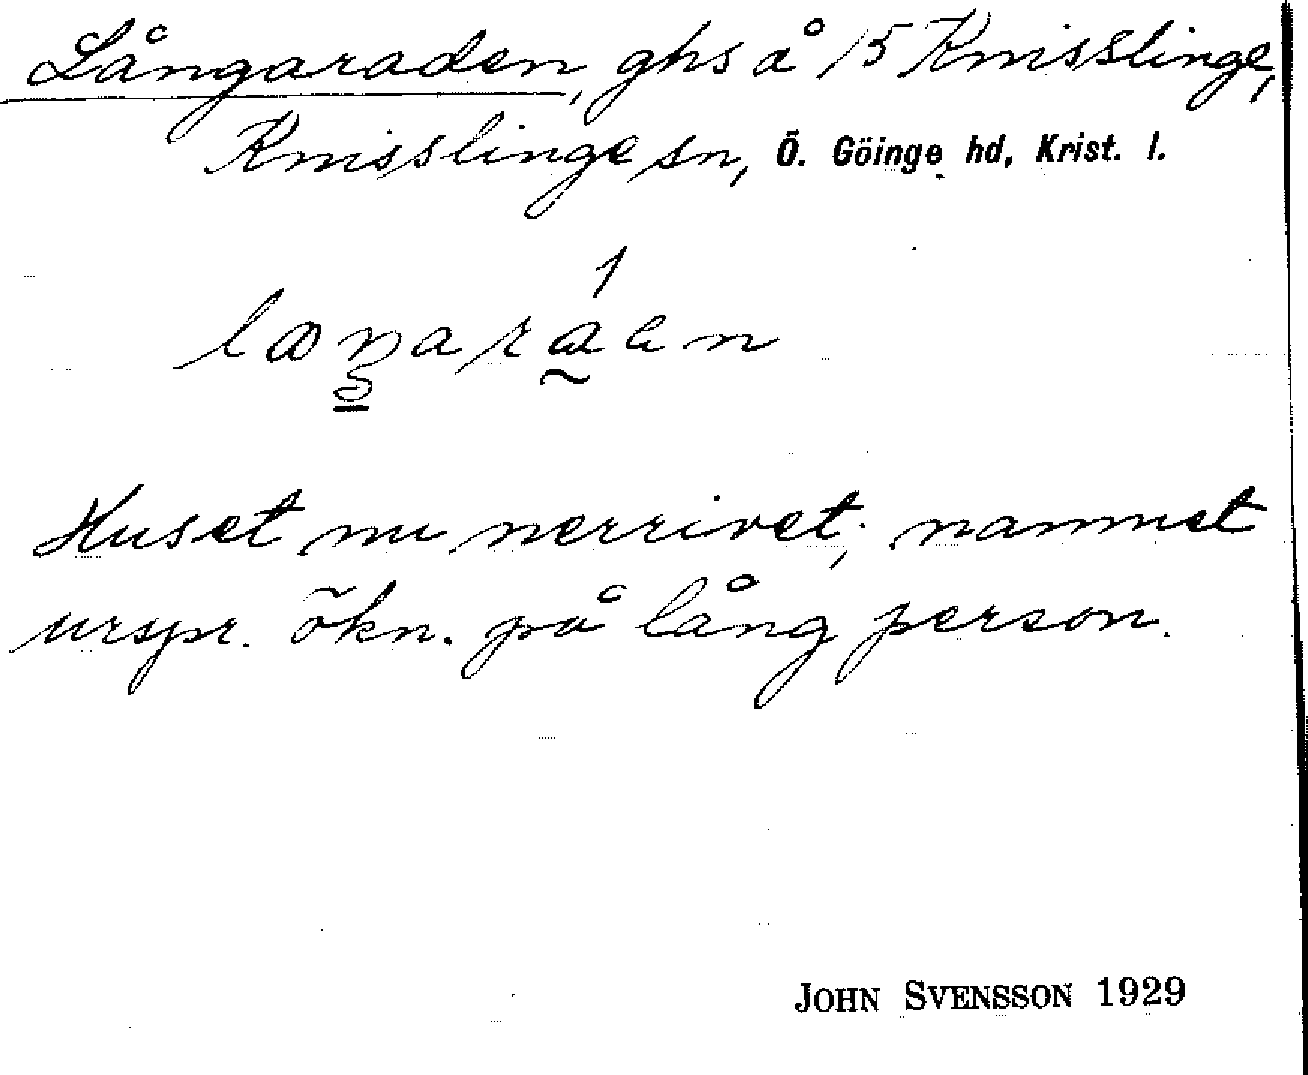 Långaraden, ghs å 15 Knisslinge,
Knisslinge sn, Ö. Göinge hd, Krist. l.
Huset nu nerrivet; namnet
urspr. ökn. på lång person.
JOHN SVENSSON 1929